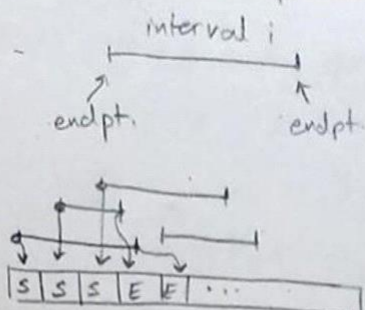 interval i
endpt. endpt.
S S S E E ...